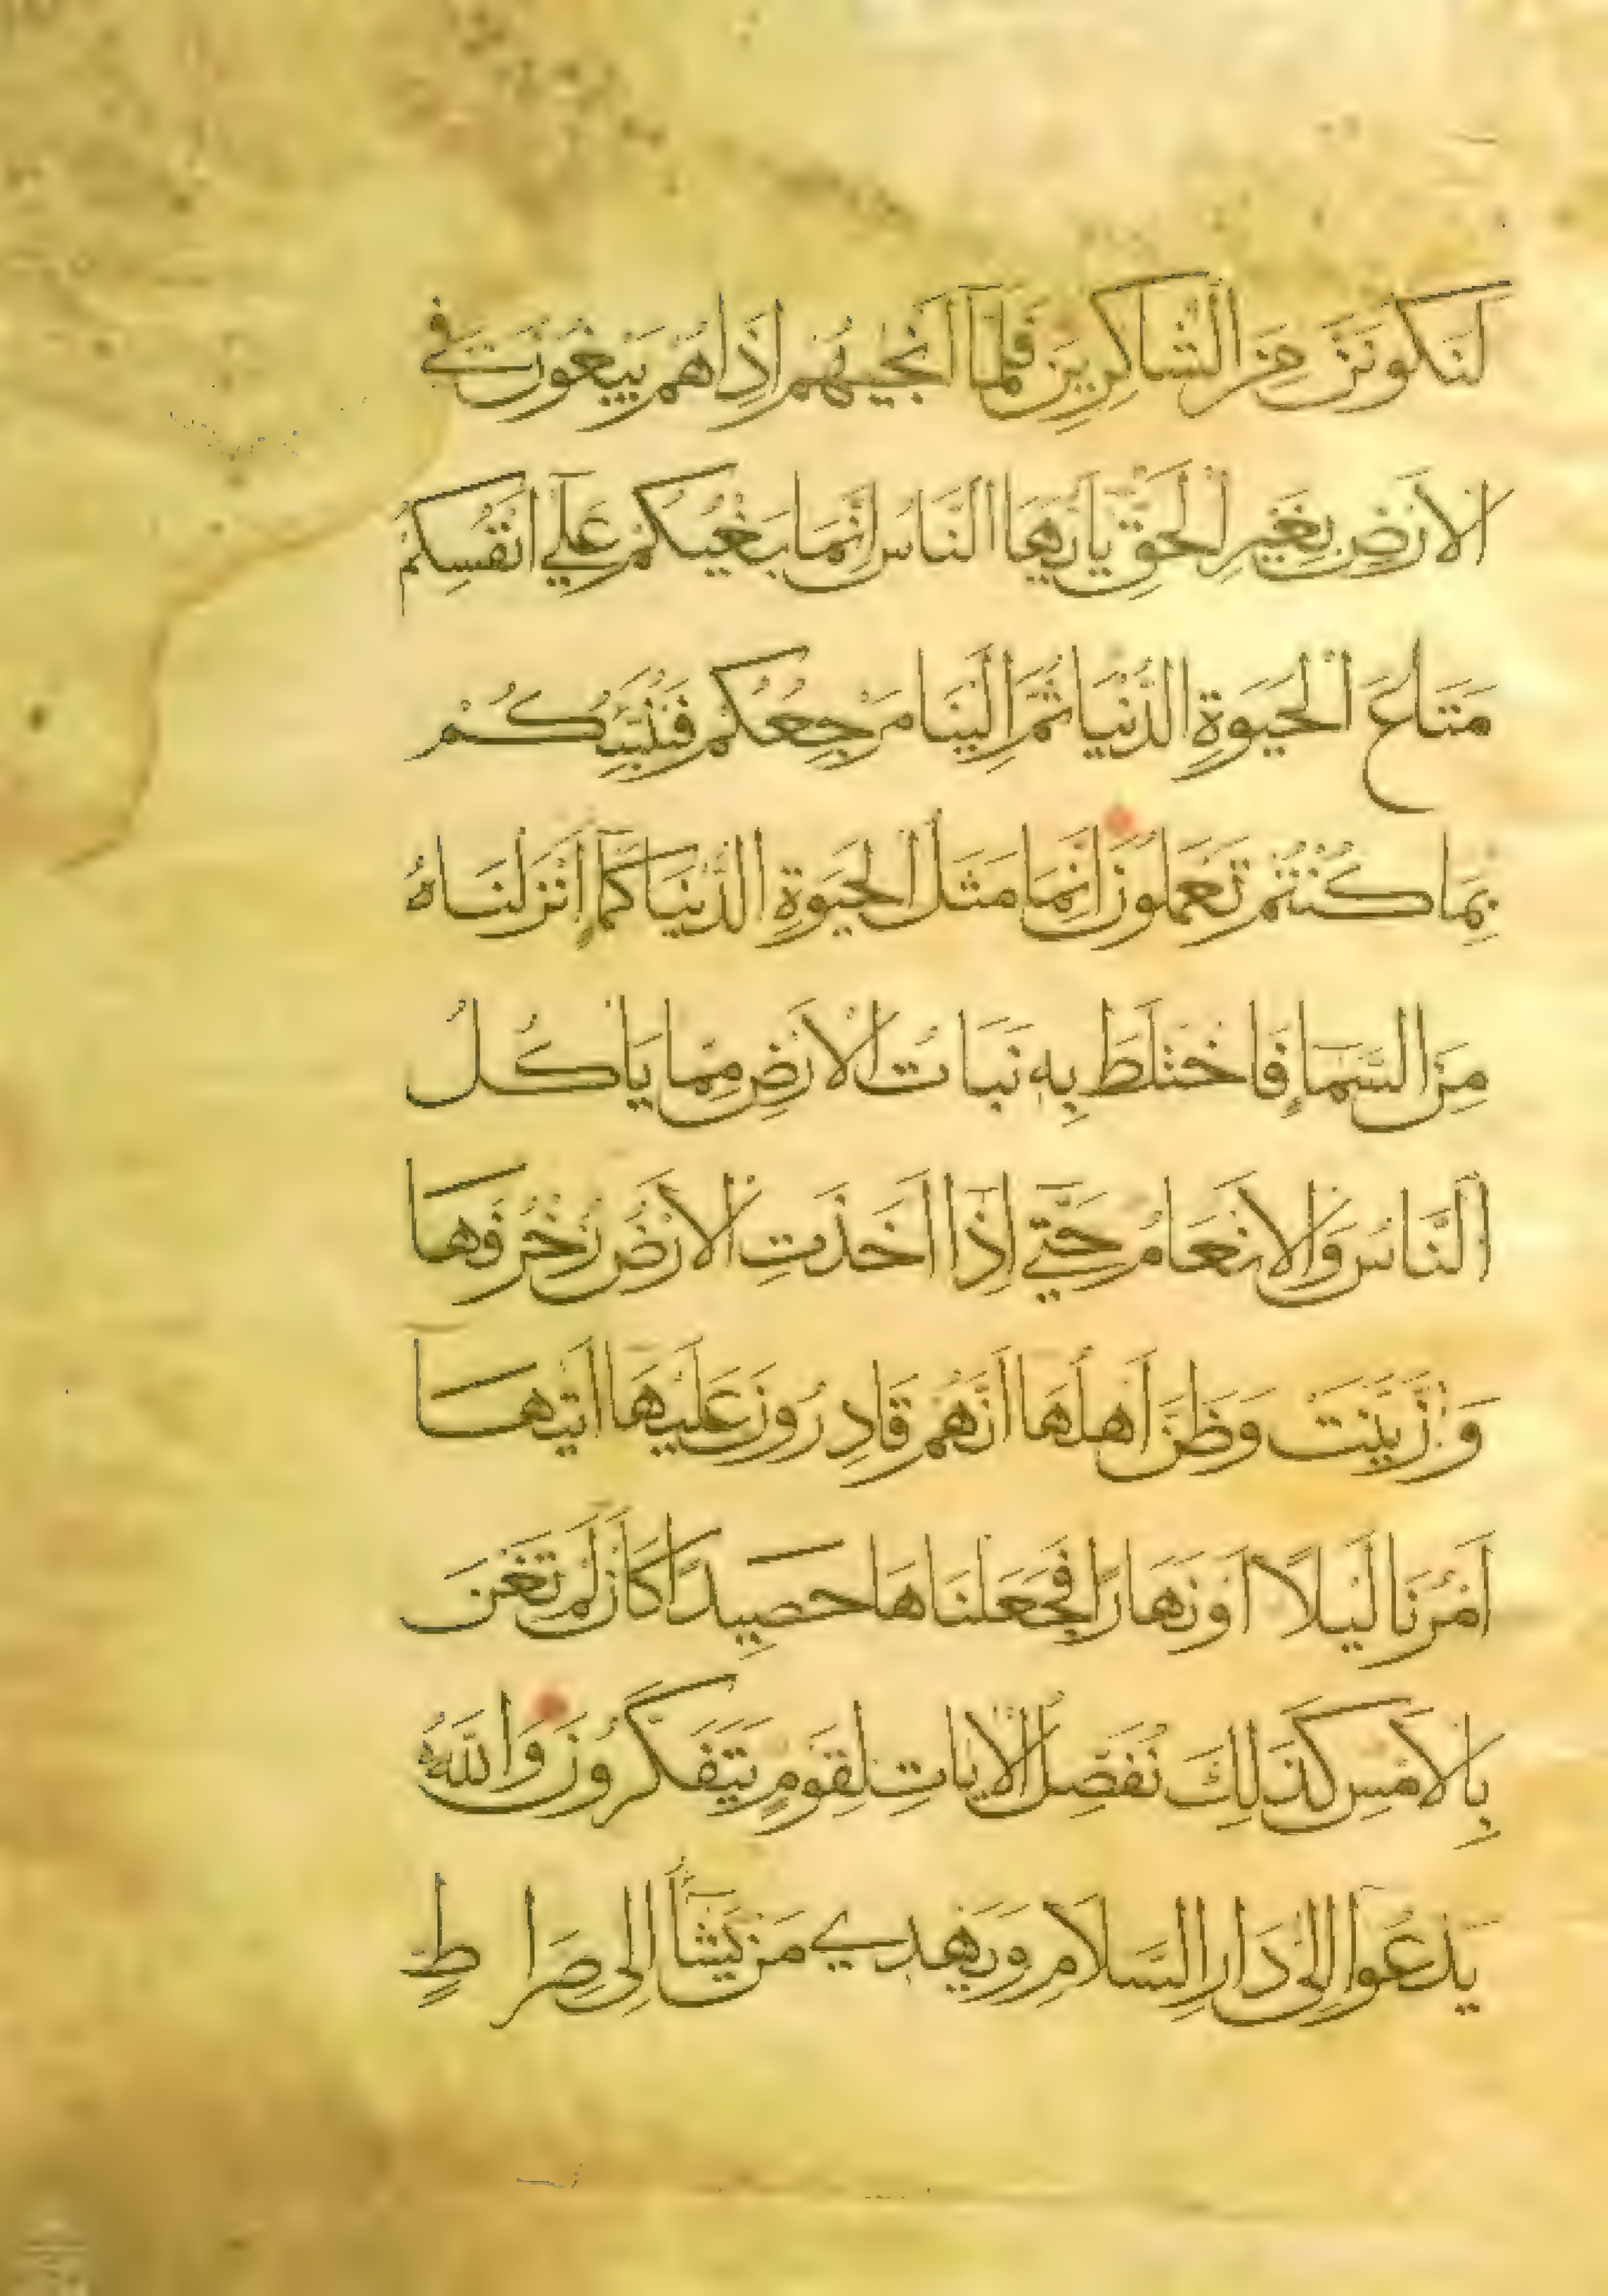 لَنَكُونَنَّ مِنَ الشَّاكِرِينَ فَلَمَّا أَنْجٰيهُمْ إِذَا هُمْ يَبْغُونَ فِي
الْاَرْضِ بِغَيْرِ الْحَقِّ يَا اَيُّهَا النَّاسُ اِنَّمَا بَغْيُكُمْ عَلٰي اَنْفُسِكُمْ
مَتَاعَ الْحَيَوةِ الدُّنْيَا ثُمَّ اِلَيْنَا مَرْجِعُكُمْ فَنُنَبِّئُكُمْ
بِمَا كُنْتُمْ تَعْمَلُونَ اِنَّمَا مَثَلُ الْحَيَوةِ الدُّنْيَا كَمَا اَنْزَلْنَاهُ
مِنَ السَّمَاءِ فَاخْتَلَطَ بِهِ نَبَاتُ الْاَرْضِ مِمَّا يَاْكُلُ
النَّاسُ وَالْاَنْعَامُ حَتّٰي اِذَا اَخَذَتِ الْاَرْضُ زُخْرُفَهَا
وَازَّيَّنَتْ وَظَنَّ اَهْلُهَا اَنَّهُمْ قَادِرُونَ عَلَيْهَا اَتٰيهَا
اَمْرُنَا لَيْلًا اَوْ نَهَارًا فَجَعَلْنَاهَا حَصِيدًا كَاَنْ لَمْ تَغْنَ
بِالْاَمْسِ كَذَلِكَ نُفَصِّلُ الْاٰيَاتِ لِقَوْمٍ يَتَفَكَّرُونَ وَاللّٰهُ
يَدْعُوا اِلٰى دَارِ السَّلَامِ وَيَهْدِي مَنْ يَشَآءُ اِلٰى صِرَاطٍ